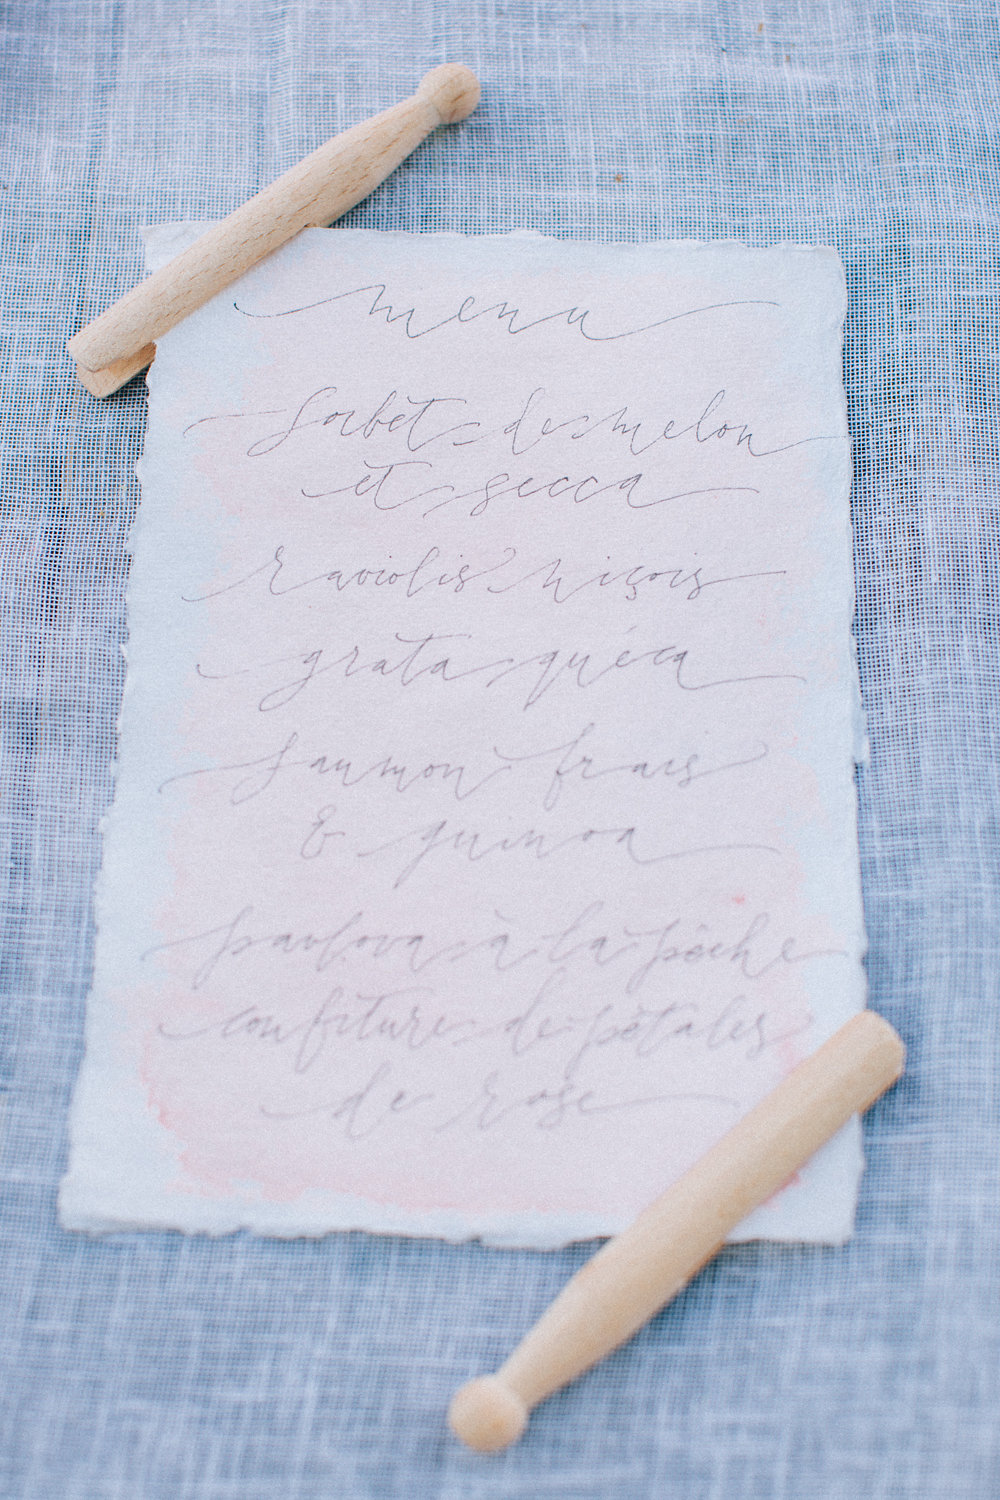 menu
Sorbet de melon
et secca
Raviolis niçois
grata quéca
Saumon frais
& quinoa
pavlova à la pêche
confiture de pétales
de rose